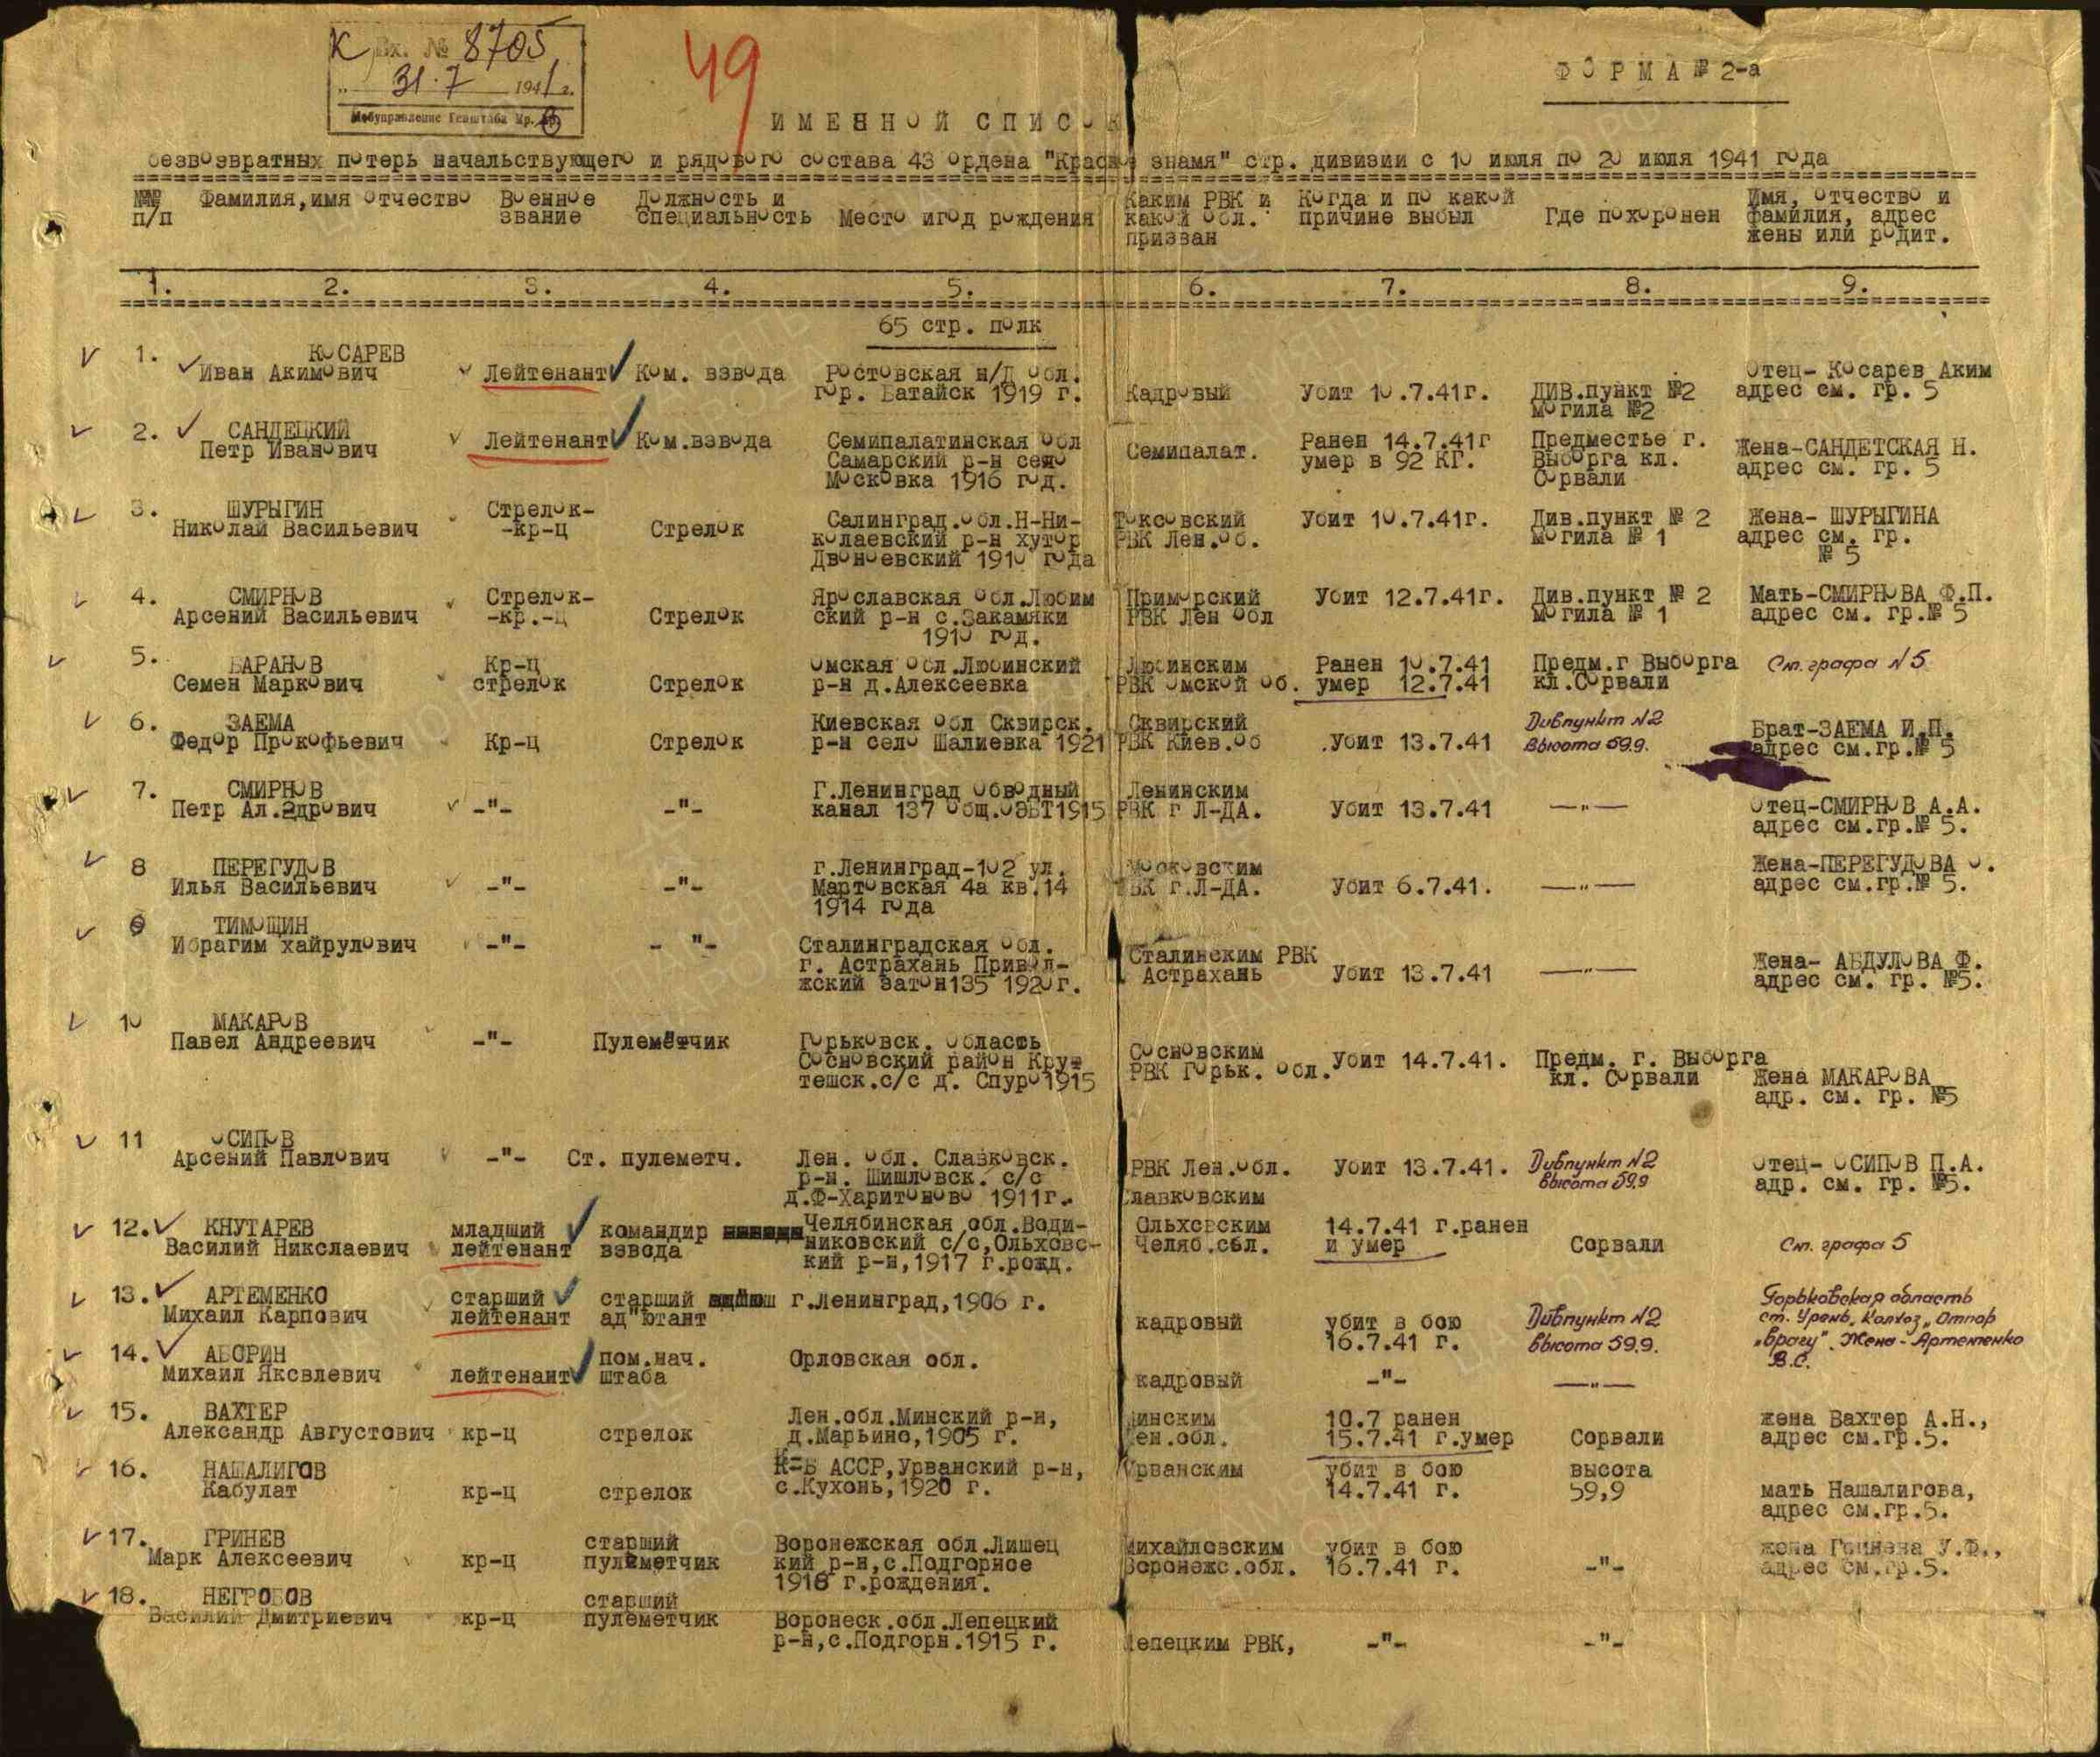 К Вх. № 8705
31.7 1941 г.
Мобуправление Генштаба Кр.
49
ФОРМА № 2-а
ИМЕННОЙ СПИСОК
безвозвратных потерь начальствующего и рядового состава 43 ордена "Красное знамя" стр. дивизии с 10 июля по 20 июля 1941 года
№№ п/п Фамилия,имя отчество Военное звание Должность и специальность Место игод рождения Каким РВК и какой обл. призван Когда и по какой причине выбыл Где похоронен Имя, отчество и фамилия, адрес жены или родит.
1. 2. 3. 4. 5. 6. 7. 8. 9.
65 стр. полк
1. КОСАРЕВ
Иван Акимович Лейтенант Ком. взвода Ростовская н/Д обл. гор. Батайск 1919 г. Кадровый Убит 10.7.41г. ДИВ.пункт №2 могила №2 Отец- Косарев Аким адрес см. гр. 5
2. САНДЕЦКИЙ
Петр Иванович Лейтенант Ком.взвода Семипалатинская обл Самарский р-н село Московка 1916 год. Семипалат. Ранен 14.7.41г умер в 92 КГ. Предместье г. Выборга кл. Сорвали Жена-САНДЕТСКАЯ Н. адрес см. гр. 5
3. ШУРЫГИН
Николай Васильевич Стрелок- -кр-ц Стрелок Салинград.обл.Н-Ни- колаевский р-н хутор Двоноевский 1910 года Токсовский РВК Лен.об. Убит 10.7.41г. Див.пункт № 2 могила № 1 Жена- ШУРЫГИНА адрес см. гр. № 5
4. СМИРНОВ
Арсений Васильевич Стрелок- -кр.-ц Стрелок Ярославская обл.Любим ский р-н с.Закамяки 1910 год. Приморский РВК Лен обл Убит 12.7.41г. Див.пункт № 2 могила № 1 Мать-СМИРНОВА Ф.П. адрес см. гр.№ 5
5. БАРАНОВ
Семен Маркович Кр-ц стрелок Стрелок Омская обл.Любинский р-н д.Алексеевка Любинским РВК Омской об. Ранен 10.7.41 умер 12.7.41 Предм.г Выборга кл.Сорвали См. графа № 5
6. ЗАЕМА
Федор Прокофьевич Кр-ц Стрелок Киевская обл Сквирск. р-н село Шалиевка 1921 Сквирский РВК Киев.об .Убит 13.7.41 Дивпункт №2 высота 59.9. Брат-ЗАЕМА И.П. адрес см.гр.№ 5
7. СМИРНОВ
Петр Ал.эдрович -"- -"- Г.Ленинград Обводный канал 137 общ. 1915 Ленинским РВК г Л-ДА. Убит 13.7.41 —"— Отец-СМИРНОВ А.А. адрес см.гр.№ 5.
8 ПЕРЕГУДОВ
Илья Васильевич -"- -"- г.Ленинград-102 ул. Мартовская 4а кв.14 1914 года Московским РВК г.Л-ДА. Убит 6.7.41. —"— Жена-ПЕРЕГУДОВА О. адрес см.гр.№ 5.
9 ТИМОЩИН
Ибрагим хайрулович -"- - "- Сталинградская обл. г. Астрахань Привол- жский затон135 1920г. Сталинским РВК Астрахань Убит 13.7.41 —"— Жена- АБДУЛОВА Ф. адрес см. гр. №5.
10 МАКАРОВ
Павел Андреевич -"- Пулемётчик Горьковск. область Сосновский район Круг тешск.с/с д. Спуро1915 Сосновским РВК Горьк. обл. Убит 14.7.41. Предм. г. Выборга кл. Сорвали Жена МАКАРОВА адр. см. гр. №5
11 ОСИПОВ
Арсений Павлович -"- Ст. пулеметч. Лен. обл. Славковск. р-н. Шишловск. с/с д.Ф-Харитоново 1911г. РВК Лен.обл. Славковским Убит 13.7.41. Дивпункт №2 высота 59.9 Отец- ОСИПОВ П.А. адр. см. гр. №5.
12. КНУТАРЕВ
Василий Николаевич младший лейтенант командир взвода Челябинская обл.Води- никовский с/с,Ольховс- кий р-н,1917 г.рожд. Ольховским Челяб.обл. 14.7.41 г.ранен и умер Сорвали См. графа 5
13. АРТЕМЕНКО
Михаил Карпович старший лейтенант старший ад"ютант г.Ленинград,1906 г. кадровый убит в бою 16.7.41 г. Дивпункт №2 высота 59.9. Горьковская область ст. Урень, колхоз „Отпор врагу". Жена - Артеменко В.С.
14. АБОРИН
Михаил Яковлевич лейтенант пом.нач. штаба Орловская обл. кадровый -"- —"—
15. ВАХТЕР
Александр Августович кр-ц стрелок Лен.обл.Минский р-н, д.Марьино,1905 г. Минским Лен.обл. 10.7 ранен 15.7.41 г.умер Сорвали жена Вахтер А.Н., адрес см.гр.5.
16. НАШАЛИГОВ
Кабулат кр-ц стрелок К-Б АССР,Урванский р-н, с.Кухонь,1920 г. Урванским убит в бою 14.7.41 г. высота 59,9 мать Нашалигова, адрес см.гр.5.
17. ГРИНЕВ
Марк Алексеевич кр-ц старший пулеметчик Воронежская обл.Лишец кий р-н,с.Подгорное 1916 г.рождения. Михайловским Воронежс.обл. убит в бою 16.7.41 г. -"- жена Гринева У.Ф., адрес см.гр.5.
18. НЕГРОБОВ
Василий Дмитриевич кр-ц старший пулеметчик Воронеск.обл.Лепецкий р-н,с.Подгорн.1915 г. Лепецким РВК, -"- -"-